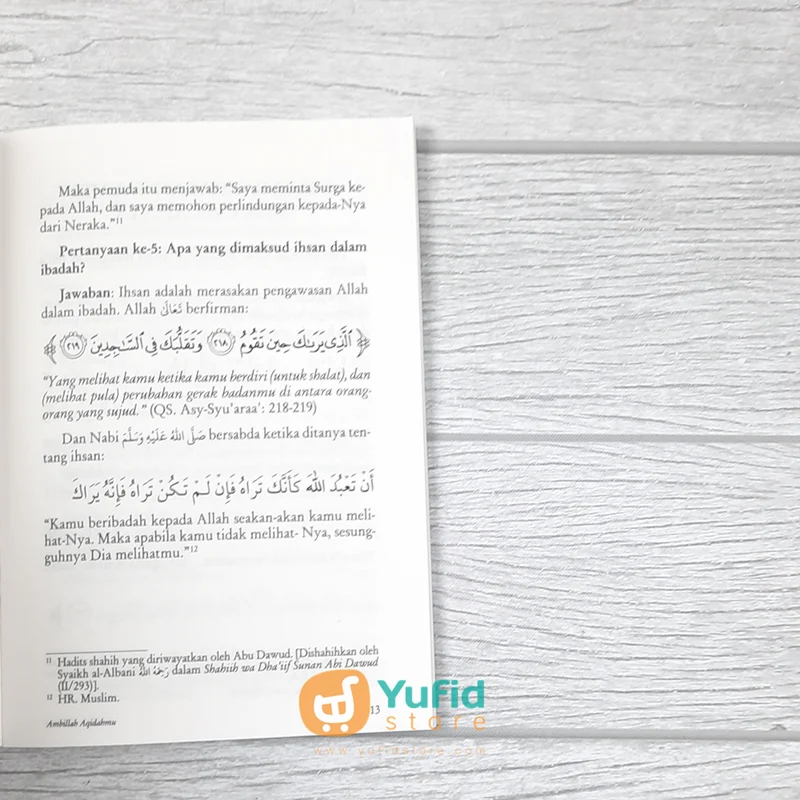 Maka pemuda itu menjawab: “Saya meminta Surga ke-
pada Allah, dan saya memohon perlindungan kepada-Nya
dari Neraka.”11
Pertanyaan ke-5: Apa yang dimaksud ihsan dalam
ibadah?
Jawaban: Ihsan adalah merasakan pengawasan Allah
dalam ibadah. Allah تَعَالَى berfirman:
﴿ ٱلَّذِى يَرَىٰكَ حِينَ تَقُومُ ٢١٨ وَتَقَلُّبَكَ فِى ٱلسَّـٰجِدِينَ ٢١٩ ﴾
“Yang melihat kamu ketika kamu berdiri (untuk shalat), dan
(melihat pula) perubahan gerak badanmu di antara orang-
orang yang sujud.” (QS. Asy-Syu’araa’: 218-219)
Dan Nabi صَلَّى اللهُ عَلَيْهِ وَسَلَّمَ bersabda ketika ditanya ten-
tang ihsan:
أَنْ تَعْبُدَ اللهَ كَأَنَّكَ تَرَاهُ فَإِنْ لَمْ تَكُنْ تَرَاهُ فَإِنَّهُ يَرَاكَ
“Kamu beribadah kepada Allah seakan-akan kamu meli-
hat-Nya. Maka apabila kamu tidak melihat- Nya, sesung-
guhnya Dia melihatmu.”12
11 Hadits shahih yang diriwayatkan oleh Abu Dawud. [Dishahihkan oleh
Syaikh al-Albani رَحِمَهُ اللهُ dalam Shahiih wa Dha’iif Sunan Abi Dawud
(II/293)].
12 HR. Muslim.
Ambillah Aqidahmu
13
Yufid
store
www.yufidstore.com